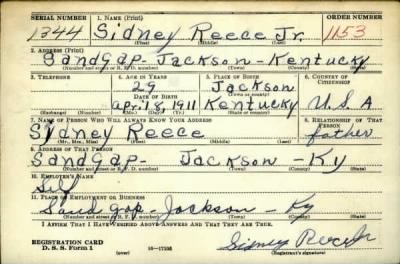 SERIAL NUMBER 1. NAME (Print) ORDER NUMBER
1344 Sidney Reece Jr. 1153
(First) (Middle) (Last)
2. ADDRESS (Print)
Sandgap - Jackson - Kentucky
(Number and street or R. F. D. number) (Town) (County) (State)
3. TELEPHONE 4. AGE IN YEARS 5. PLACE OF BIRTH 6. COUNTRY OF CITIZENSHIP
29 Jackson
DATE OF BIRTH (Town or county)
April 8, 1911 Kentucky U.S.A
(Exchange) (Number) (Mo.) (Day) (Yr.) (State or country)
7. NAME OF PERSON WHO WILL ALWAYS KNOW YOUR ADDRESS 8. RELATIONSHIP OF THAT PERSON
Sidney Reece father
(Mr., Mrs., Miss) (First) (Middle) (Last)
9. ADDRESS OF THAT PERSON
Sandgap - Jackson - Ky
(Number and street or R. F. D. number) (Town) (County) (State)
10. EMPLOYER'S NAME
Self
11. PLACE OF EMPLOYMENT OR BUSINESS
Sand Gap - Jackson - Ky
(Number and street or R. F. D. number) (Town) (County) (State)
I AFFIRM THAT I HAVE VERIFIED ABOVE ANSWERS AND THAT THEY ARE TRUE.
REGISTRATION CARD
D. S. S. Form 1 (over) 16-17105 Sidney Reece Jr
(Registrant's signature)